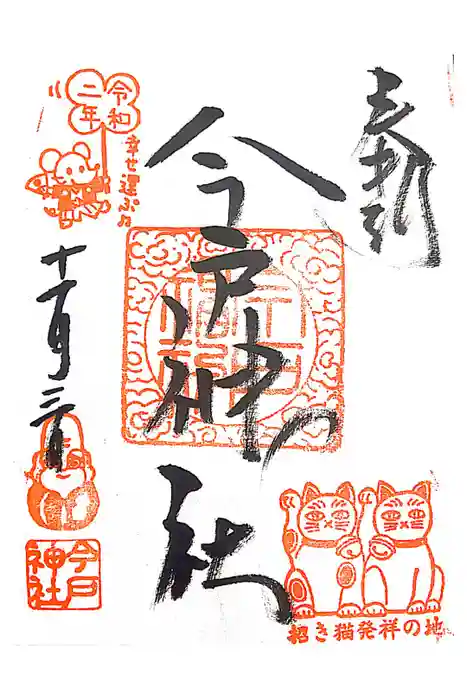 奉拝
今戸神社
今戸神社
令和
二年
幸せ運ぶ♫
十一月三日
今戸
神社
招き猫発祥の地